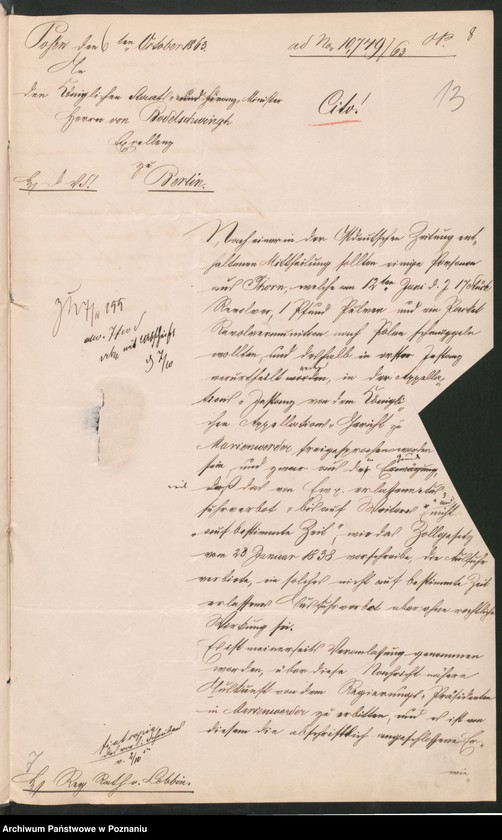 Posen den 6ten October 1863.
ad No 10,749/63 OP. 8
13
An
den Königlichen Staats- und Finanz-Minister
Herrn von Bodelschwingh
Excellenz
zu
Berlin.
Cito!
Nach einer in der Ostdeutschen Zeitung ent-
haltenen Mittheilung sollten einige Personen
aus Thorn, welche am 12ten Juni d. J. 17
Revolver, 1 Pfund Pulver und ein Packet
Revolvermunition nach Polen schmuggeln
wollten, und deshalb in erster Instanz
verurtheilt worden, in der Appella-
tions-Instanz von dem Königli-
chen Appellations-Gericht zu
Marienwerder freigesprochen worden
sein, und zwar aus der Erwägung
daß das von Ew. erlassene Aus-
fuhrverbot "bis auf Weiteres" und nicht
"auf bestimmte Zeit", wie das Zollgesetz
vom 23 Januar 1838 vorschreibe, die Ausfuhr
verbiete, ein solches nicht auf bestimmte Zeit
erlassenes Ausfuhrverbot aber ohne rechtliche
Wirkung sei.
Es ist meinerseits Veranlassung genommen
worden, über diese Nachricht nähere
Auskunft von dem Regierungs-Präsidenten
in Marienwerder zu erbitten, und es ist von
diesem die abschriftlich angeschlossene Er-
wie
Reg Rath v.
Archiwum Państwowe w Poznaniu